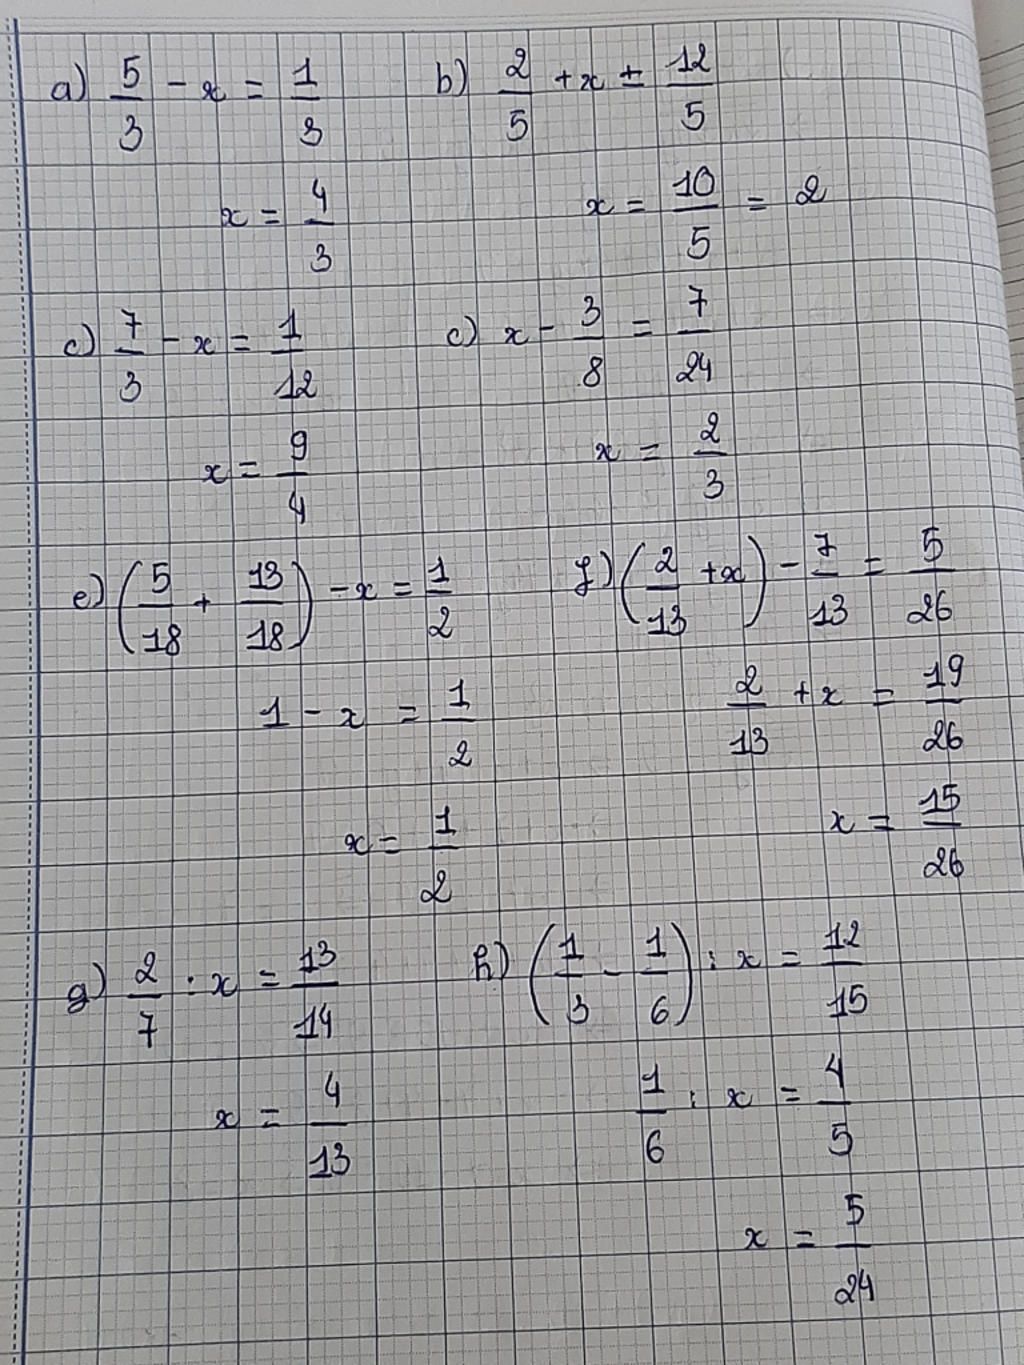 a) 5/3 - x = 1/3
x = 4/3
b) 2/5 + x = 12/5
x = 10/5 = 2
c) 7/3 - x = 1/12
x = 9/4
c) x - 3/8 = 7/24
x = 2/3
e) (5/18 + 13/18) - x = 1/2
1 - x = 1/2
x = 1/2
f) (2/13 + x) - 7/13 = 5/26
2/13 + x = 19/26
x = 15/26
g) 2/7 : x = 13/14
x = 4/13
h) (1/3 - 1/6) : x = 12/15
1/6 : x = 4/5
x = 5/24